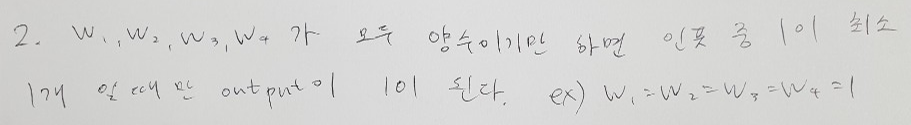 2. W₁, W₂, W₃, W₄ 가 모두 양수이기만 하면 인풋 중 1이 최소
1개 일 때만 output이 1이 된다. ex) W₁=W₂=W₃=W₄=1